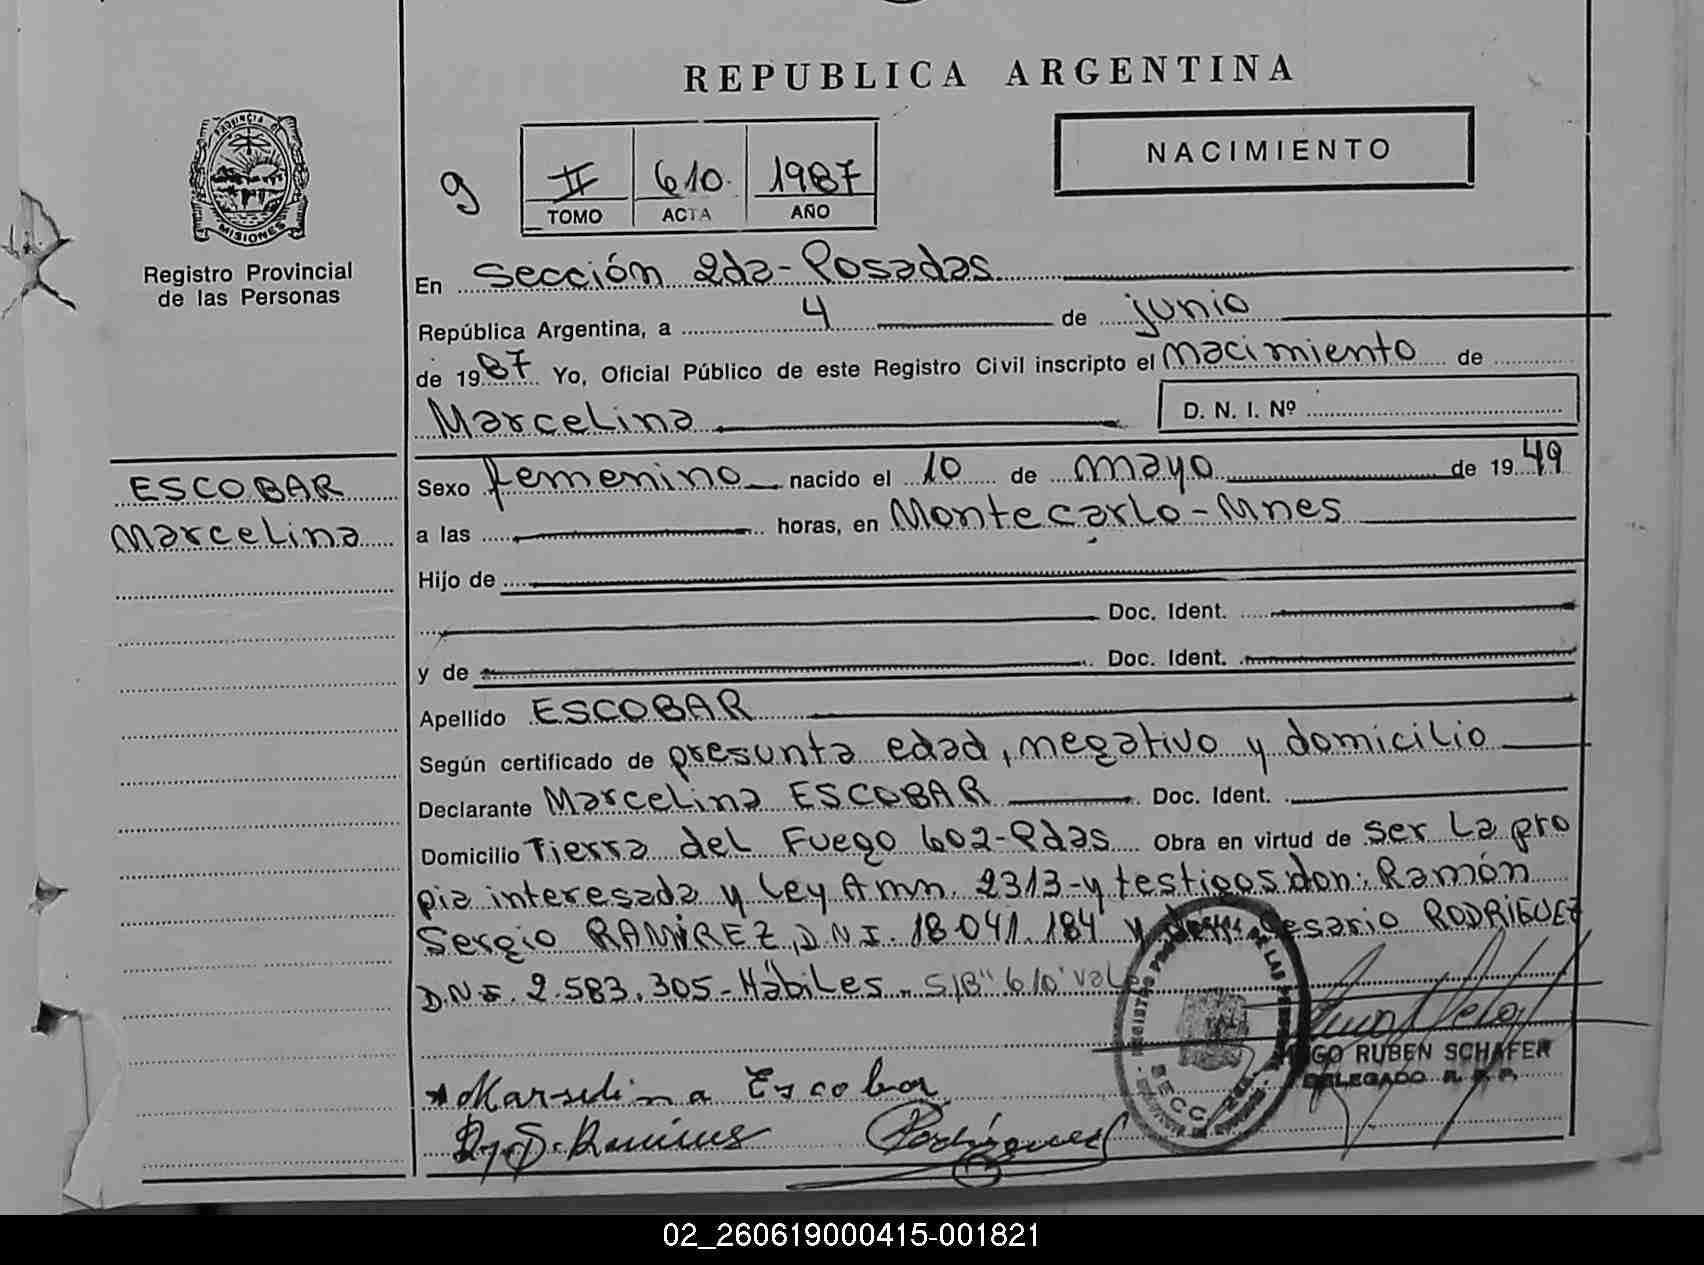 REPUBLICA ARGENTINA
PROVINCIA DE
MISIONES
Registro Provincial
de las Personas
NACIMIENTO
9
II 610 1987
TOMO ACTA AÑO
En Sección 2da-Posadas
República Argentina, a 4 de junio
de 1987 Yo, Oficial Público de este Registro Civil inscripto el nacimiento de
Marcelina D. N. I. Nº
ESCOBAR
Marcelina
Sexo femenino nacido el 10 de mayo de 1949
a las horas, en Montecarlo-Mnes
Hijo de
Doc. Ident.
y de Doc. Ident.
Apellido ESCOBAR
Según certificado de presunta edad, negativo y domicilio
Declarante Marcelina ESCOBAR Doc. Ident.
Domicilio Tierra del Fuego 602-Pdas Obra en virtud de ser la pro
pia interesada y Ley Amn. 2313-y testigos don: Ramón
Sergio RAMIREZ, D.N.I. 18.041.184 y don: Cesario RODRIGUEZ
D.N.I. 2.583.305-Hábiles. S/B "610" Vale
HUGO RUBEN SCHAFER
DELEGADO R. P. P.
Marselina Escobar
Rodríguez
02_260619000415-001821